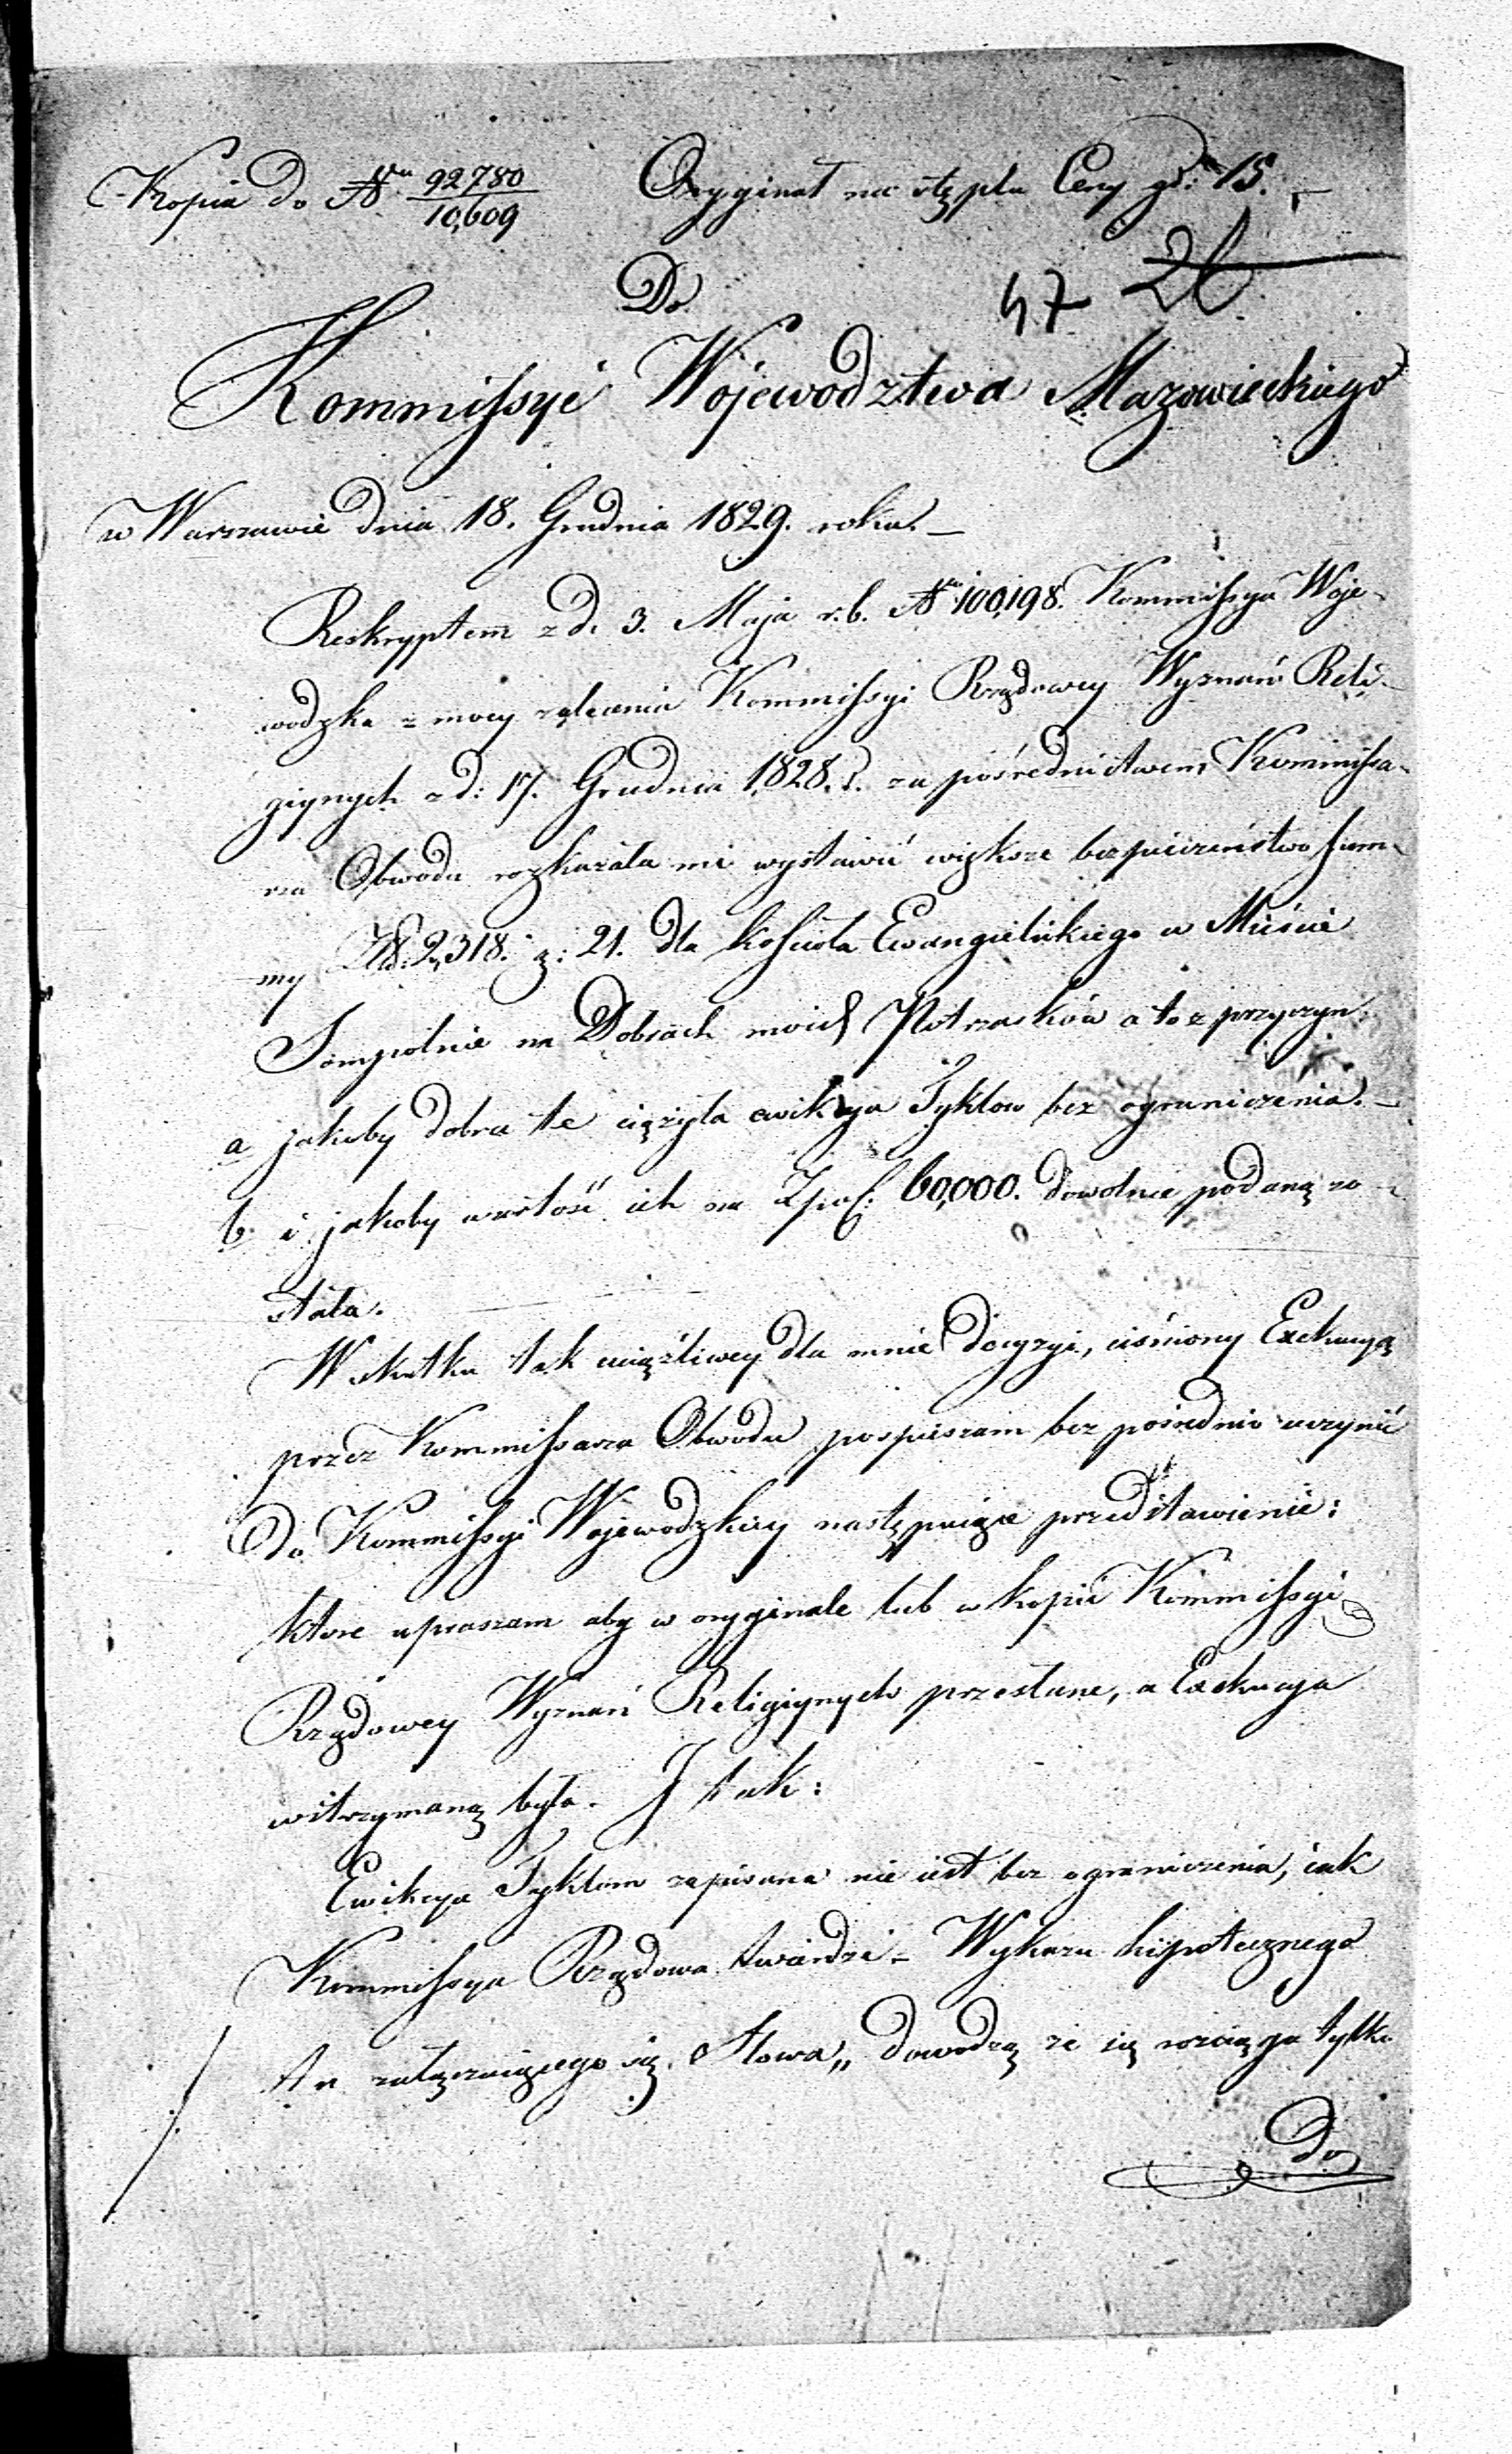 Kopia do Nru 92780/10,609 Oryginał na stęplu Ceny gr: 15.
Do
47 26
Kommissyi Województwa Mazowieckiego
w Warszawie dnia 18. Grudnia 1829. roku.
Reskryptem z d. 3. Maja r. b. Nro 100,198. Kommissya Woje-
wodzka z mocy zalecenia Kommissyi Rządowey Wyznań Reli-
giynych z d: 17. Grudnia 1828. r. za pośrednictwem Kommissa-
rza Obwodu rozkazała mi wystawić większe bezpieczeństwo sum-
my Złł: 2,318. g: 21. dla Kościoła Ewangielickiego w Mieście
Sompolnie na Dobrach moich Potrzasków a to z przyczyn
a jakoby dobra te ciężyła ewikcya Tyktow bez ograniczenia.
b. i jakoby wartość ich na Zpol: 60,000. dowolnie podaną zo-
stała.
W skutku tak uciążliwey dla mnie decyzyi, ciśniony Exekucyą
przez Kommissarza Obwodu pospieszam bezpośrednio uczynić
do Kommissyi Wojewodzkiey następuiące przedstawienie:
które upraszam aby w oryginale lub w kopii Kommissyi
Rządowey Wyznań Religiynych przesłane, a Exekucya
wstrzymaną była. I tak:
Ewikcya Tyktom zapisana nie iest bez ograniczenia, iak
Kommissya Rządowa twierdzi – Wykazu hipotecznego
tu załączaiącego się słowa „ dowodzą że się rozciąga tylko
Do